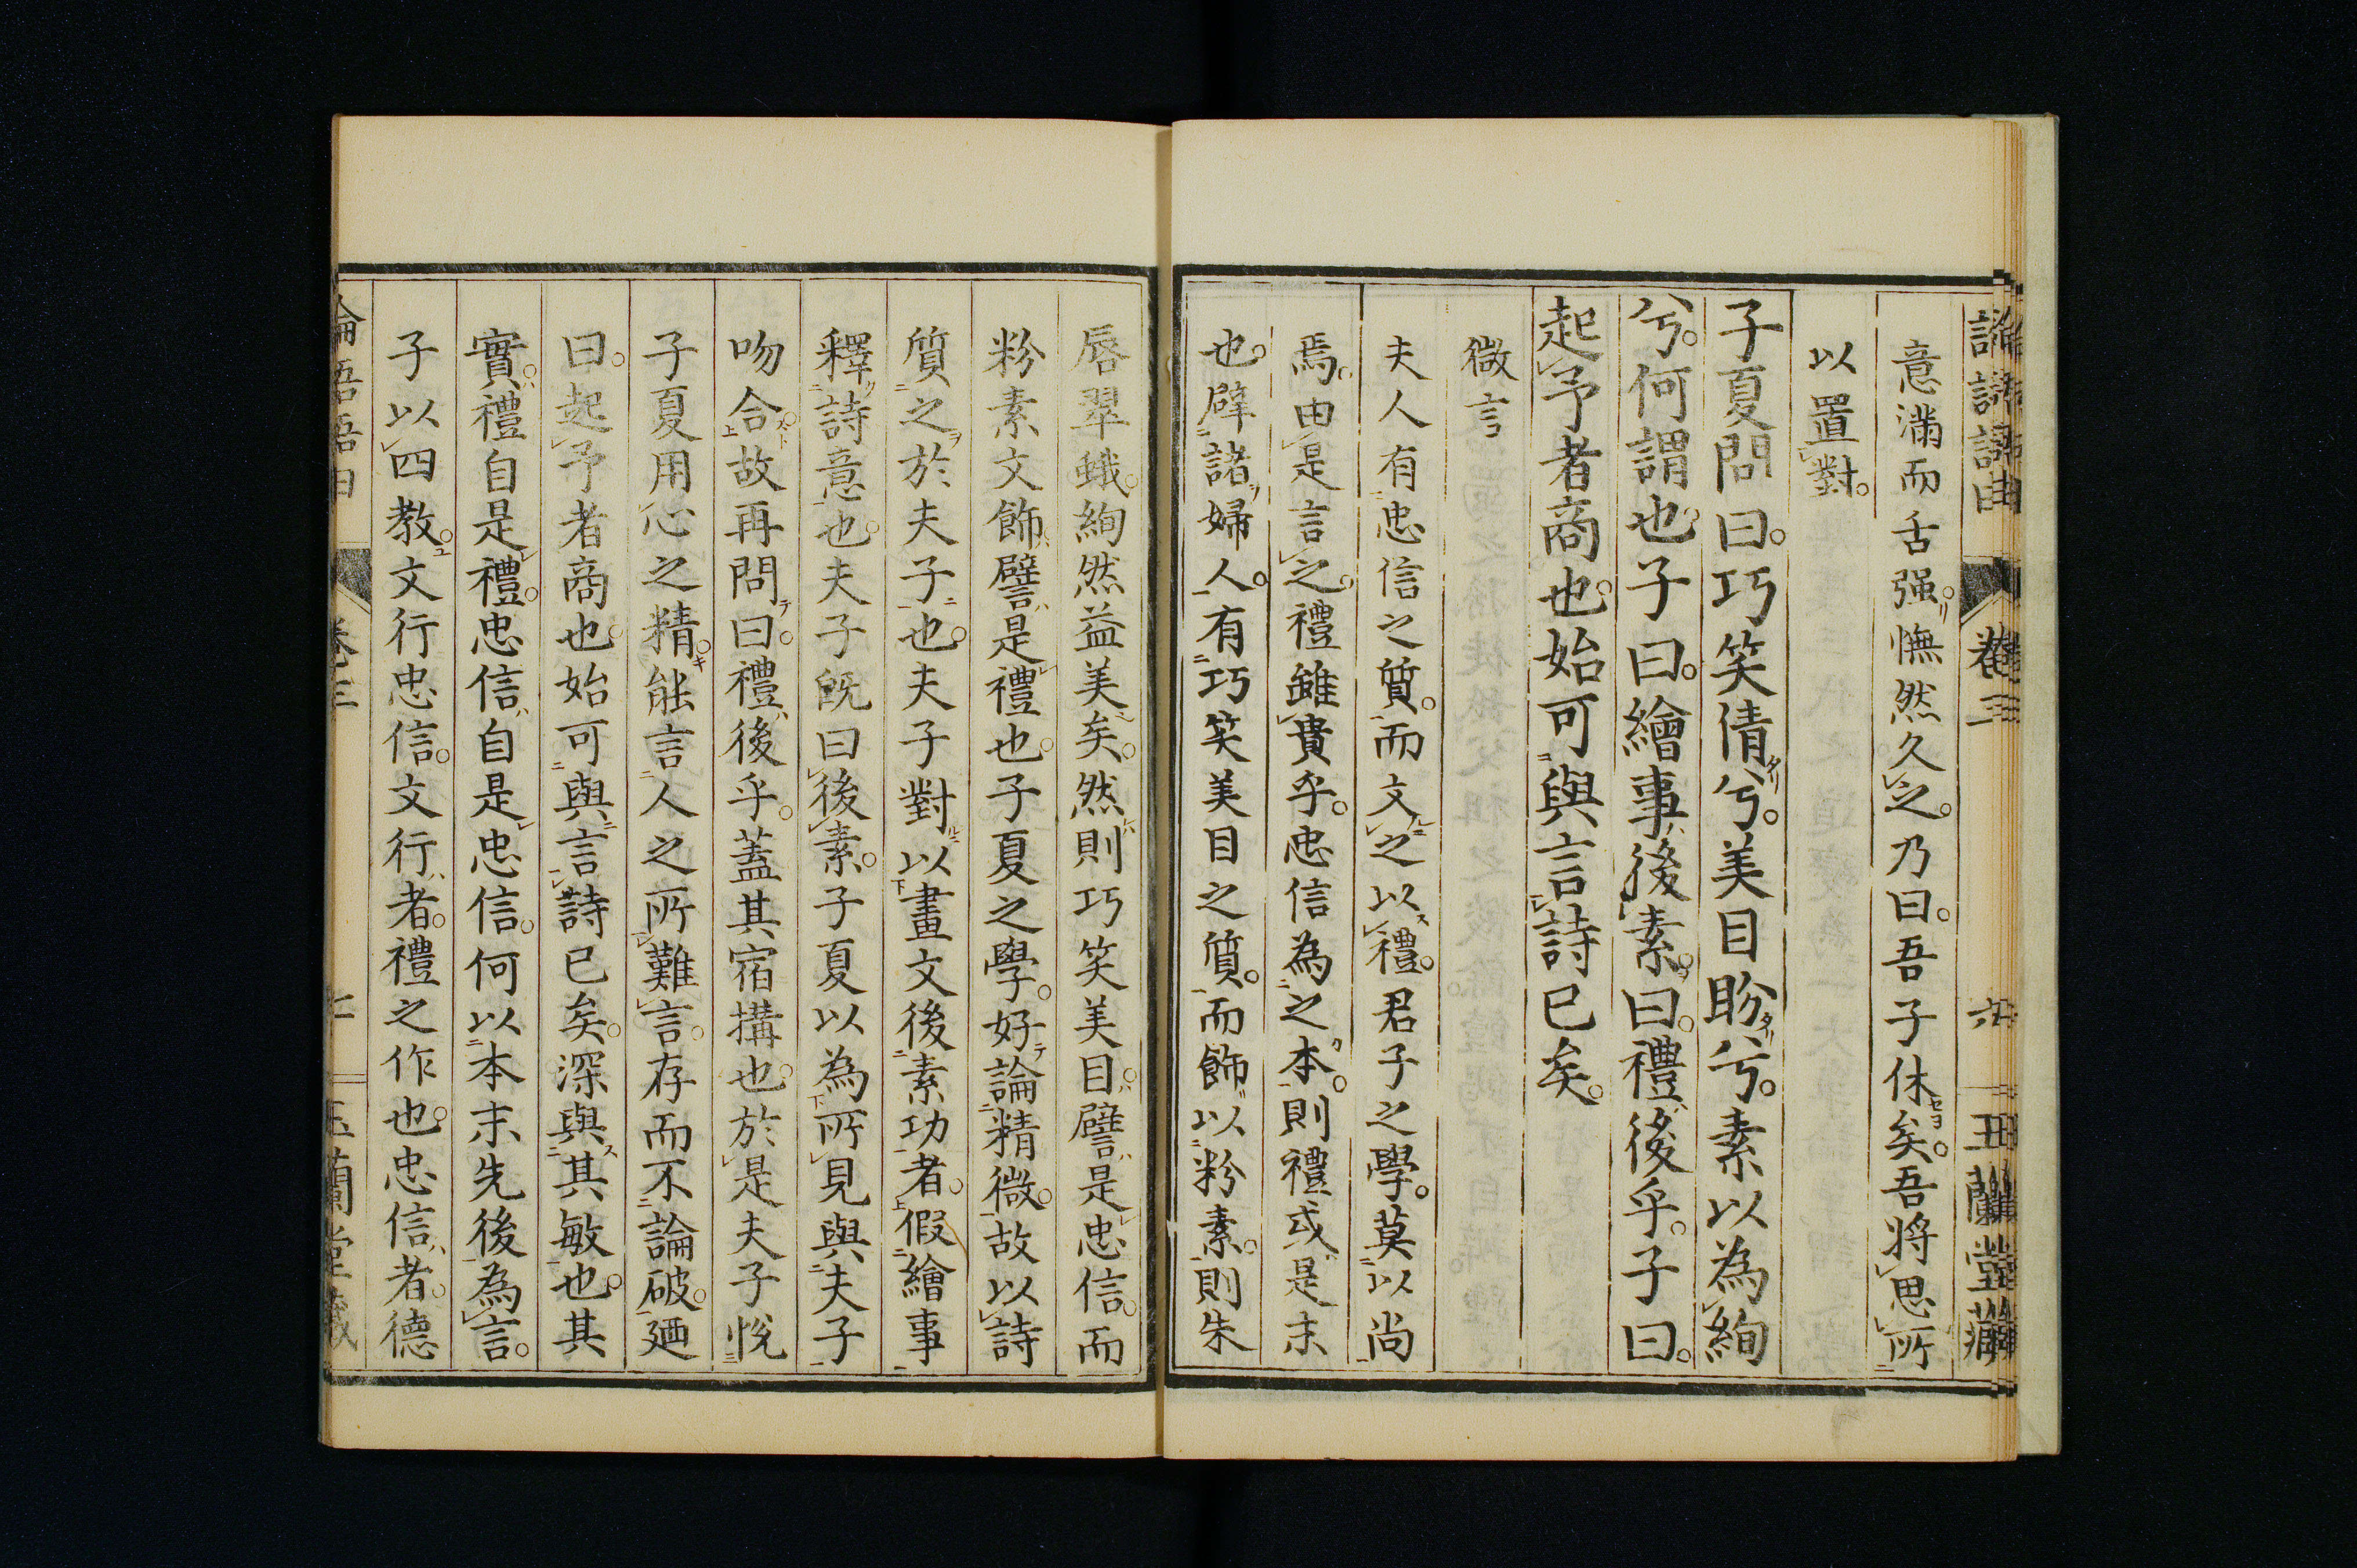 論語語由 卷三 玉蘭堂藏
意滿而舌强憮然久之乃曰吾子休矣吾將思所
以置對
子夏問曰巧笑倩兮美目盼兮素以為絢
兮何謂也子曰繪事後素曰禮後乎子曰
起予者商也始可與言詩已矣
微言
夫人有忠信之質而文之以禮君子之學莫以尚
焉由是言之禮雖貴乎忠信為之本則禮或是末
也辟諸婦人有巧笑美目之質而飾以粉素則朱
唇翠蛾絢然益美矣然則巧笑美目譬是忠信而
粉素文飾譬是禮也子夏之學好論精微故以詩
質之於夫子也夫子對以畫文後素功者假繪事
釋詩意也夫子既曰後素子夏以為所見與夫子
吻合故再問曰禮後乎蓋其宿搆也於是夫子悅
子夏用心之精能言人之所難言存而不論破廼
曰起予者商也始可與言詩已矣深與其敏也其
實禮自是禮忠信自是忠信何以本末先後為言
子以四教文行忠信文行者禮之作也忠信者德
論語語由 卷三 玉蘭堂藏